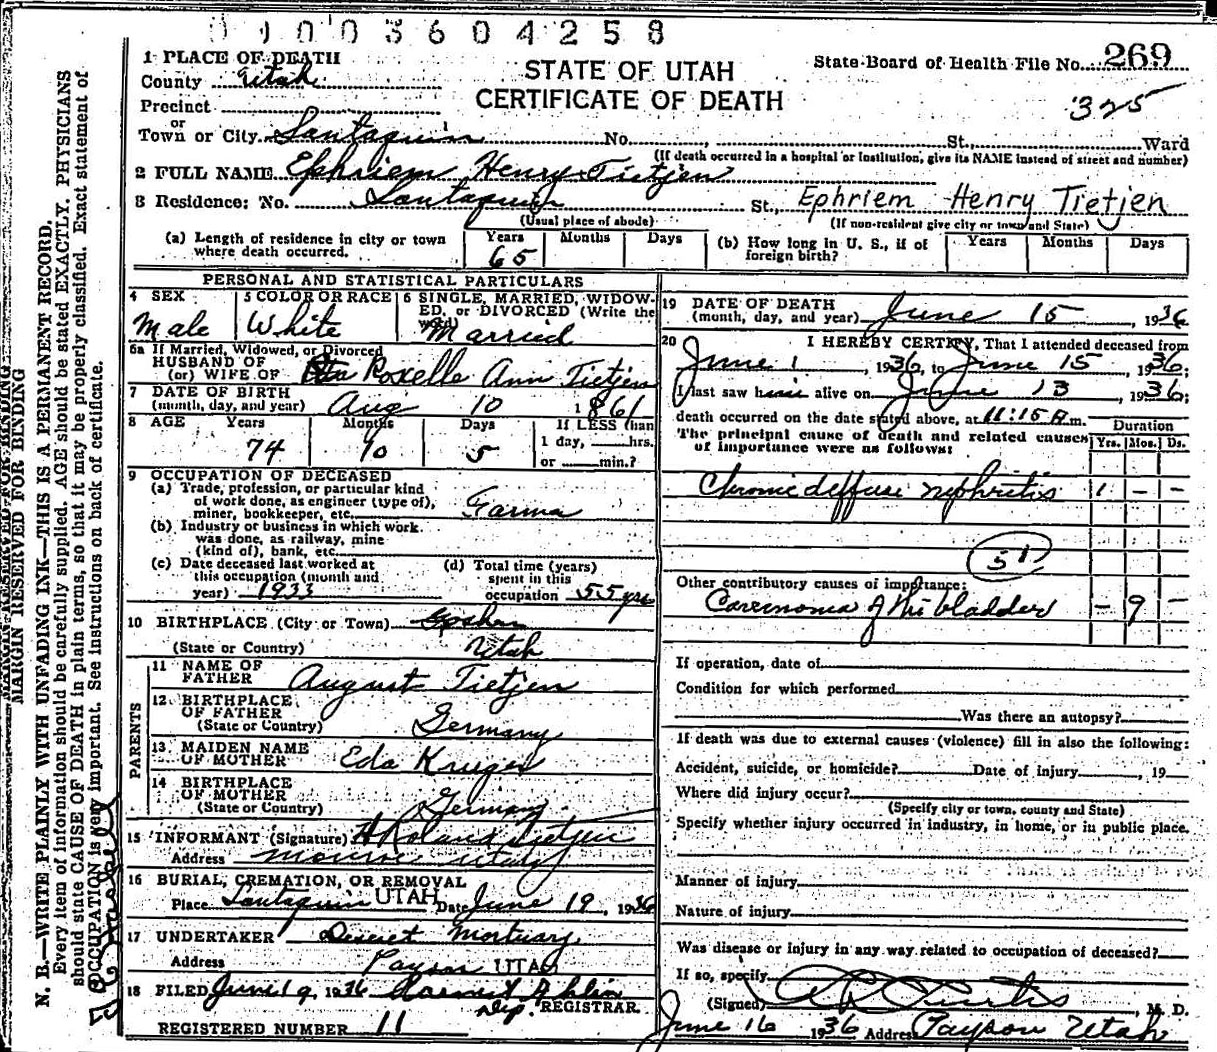 01003604258
1 PLACE OF DEATH
County Utah
Precinct
or
Town or City Santaquin No. , St., Ward
STATE OF UTAH
CERTIFICATE OF DEATH
State Board of Health File No. 269
325
(If death occurred in a hospital or institution, give its NAME instead of street and number)
2 FULL NAME Ephriem Henry Tietjen
3 Residence: No. Santaquin St., Ephriem Henry Tietjen
(Usual place of abode) (If non-resident give city or town and State)
(a) Length of residence in city or town where death occurred. Years 65 Months Days
(b) How long in U. S., if of foreign birth? Years Months Days
PERSONAL AND STATISTICAL PARTICULARS
4 SEX Male
5 COLOR OR RACE White
6 SINGLE, MARRIED, WIDOWED, or DIVORCED (Write the word) Married
6a If Married, Widowed, or Divorced
HUSBAND OF
(or) WIFE OF Roxelle Ann Tietjen
7 DATE OF BIRTH
(month, day, and year) Aug 10 1861
8 AGE Years 74 Months 10 Days 5 If LESS than
1 day, hrs.
or min.?
9 OCCUPATION OF DECEASED
(a) Trade, profession, or particular kind
of work done, as engineer (type of),
miner, bookkeeper, etc. Farma
(b) Industry or business in which work
was done, as railway, mine
(kind of), bank, etc.
(c) Date deceased last worked at
this occupation (month and
year) 1933
(d) Total time (years)
spent in this
occupation 55 yrs
10 BIRTHPLACE (City or Town) Goshen
(State or Country) Utah
PARENTS
11 NAME OF
FATHER August Tietjen
12 BIRTHPLACE
OF FATHER
(State or Country) Germany
13 MAIDEN NAME
OF MOTHER Eda Kruger
14 BIRTHPLACE
OF MOTHER
(State or Country) Germany
15 INFORMANT (Signature) A Roland Tietjen
Address Monroe Utah
16 BURIAL, CREMATION, OR REMOVAL
Place Santaquin UTAH Date June 19, 1936
17 UNDERTAKER Deseret Mortuary
Address Payson UTAH
18 FILED June 19, 1936
Dep. REGISTRAR.
REGISTERED NUMBER 11
19 DATE OF DEATH
(month, day, and year) June 15, 1936
20 I HEREBY CERTIFY, That I attended deceased from
June 1, 1936, to June 15, 1936;
I last saw him alive on June 13, 1936;
death occurred on the date stated above, at 11:15 A m.
The principal cause of death and related causes
of importance were as follows:
Duration
Yrs. Mos. Ds.
Chronic deffuse nephritis 1 - -
51
Other contributory causes of importance:
Carcinoma of the bladder - 9 -
If operation, date of
Condition for which performed
Was there an autopsy?
If death was due to external causes (violence) fill in also the following:
Accident, suicide, or homicide? Date of injury , 19
Where did injury occur?
(Specify city or town, county and State)
Specify whether injury occurred in industry, in home, or in public place.
Manner of injury
Nature of injury
Was disease or injury in any way related to occupation of deceased?
If so, specify
(Signed) Curtis, M. D.
June 16 1936 Address Payson Utah
MARGIN RESERVED FOR BINDING
MARGIN RESERVED FOR BINDING
N. B.—WRITE PLAINLY WITH UNFADING INK—THIS IS A PERMANENT RECORD.
Every item of information should be carefully supplied. AGE should be stated EXACTLY. PHYSICIANS
should state CAUSE OF DEATH in plain terms, so that it may be properly classified. Exact statement of
OCCUPATION is very important. See instructions on back of certificate.